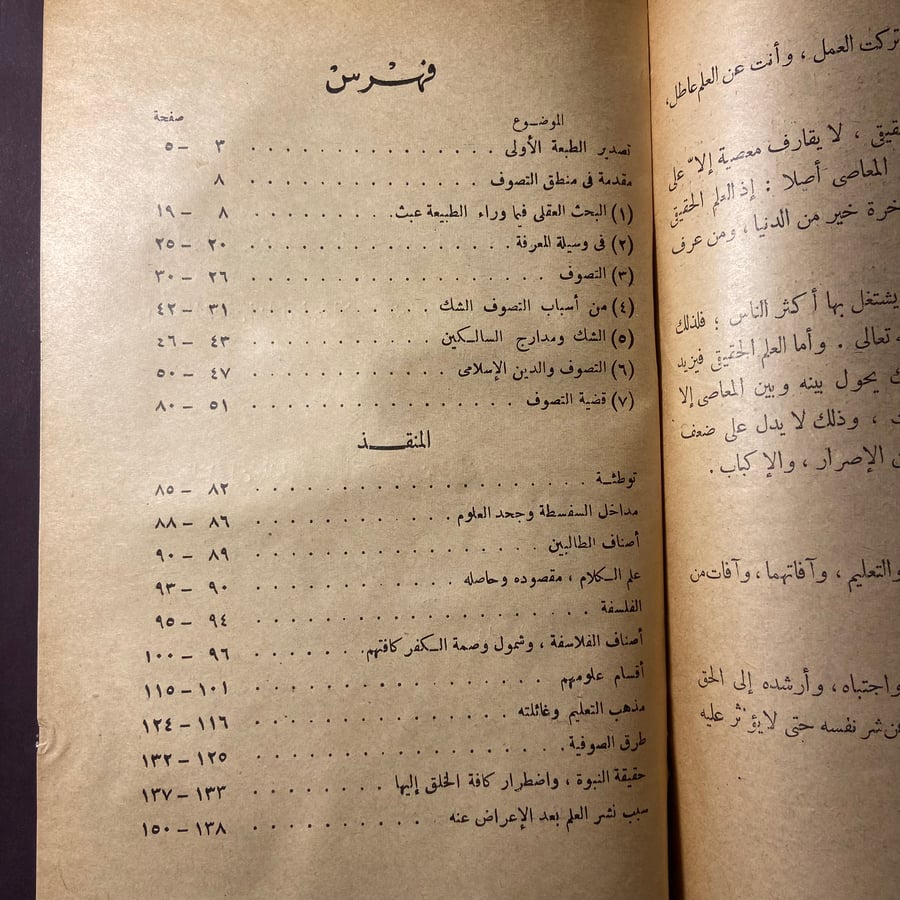 فهرس
الموضوع صفحة
تصدير الطبعة الأولى ............... ٣ – ٥
مقدمة فى منطق التصوف ............... ٨
(١) البحث العقلى فيما وراء الطبيعة عبث .......... ٨ – ١٩
(٢) فى وسيلة المعرفة ............... ٢٠ – ٢٥
(٣) التصوف ............... ٢٦ – ٣٠
(٤) من أسباب التصوف الشك ............ ٣١ – ٤٢
(٥) الشك ومدارج السالكين ............ ٤٣ – ٤٦
(٦) التصوف والدين الإسلامى ........... ٤٧ – ٥٠
(٧) قضية التصوف ............... ٥١ – ٨٠
المنقذ
توطئة ............... ٨٢ – ٨٥
مداخل السفسطة وجحد العلوم ............ ٨٦ – ٨٨
أصناف الطالبين ............... ٨٩ – ٩٠
علم الكلام ، مقصوده وحاصله ............ ٩٠ – ٩٣
الفلسفة ............... ٩٤ – ٩٥
أصناف الفلاسفة ، وشمول وصمة الكفر كافتهم ....... ٩٦ – ١٠٠
أقسام علومهم ............... ١٠١ – ١١٥
مذهب التعليم وغائلته ............... ١١٦ – ١٢٤
طرق الصوفية ............... ١٢٥ – ١٣٢
حقيقة النبوة ، واضطرار كافة الخلق إليها ........ ١٣٣ – ١٣٧
سبب نشر العلم بعد الإعراض عنه ........... ١٣٨ – ١٥٠
تركت العمل ، وأنت عن العلم عاطل ،
لا يقارف معصية إلا على
المعاصى أصلا : إذ العلم الحقيقى
خير من الدنيا ، ومن عرف
يشتغل بها أكثر الناس ؛ فلذلك
تعالى . وأما العلم الحقيقى فيزيد
يحول بينه وبين المعاصى إلا
، وذلك لا يدل على ضعف
الإصرار ، والإكباب .
والتعليم ، وآفاتهما ، وآفات من
واجتباه ، وأرشده إلى الحق
شر نفسه حتى لا يؤثر عليه